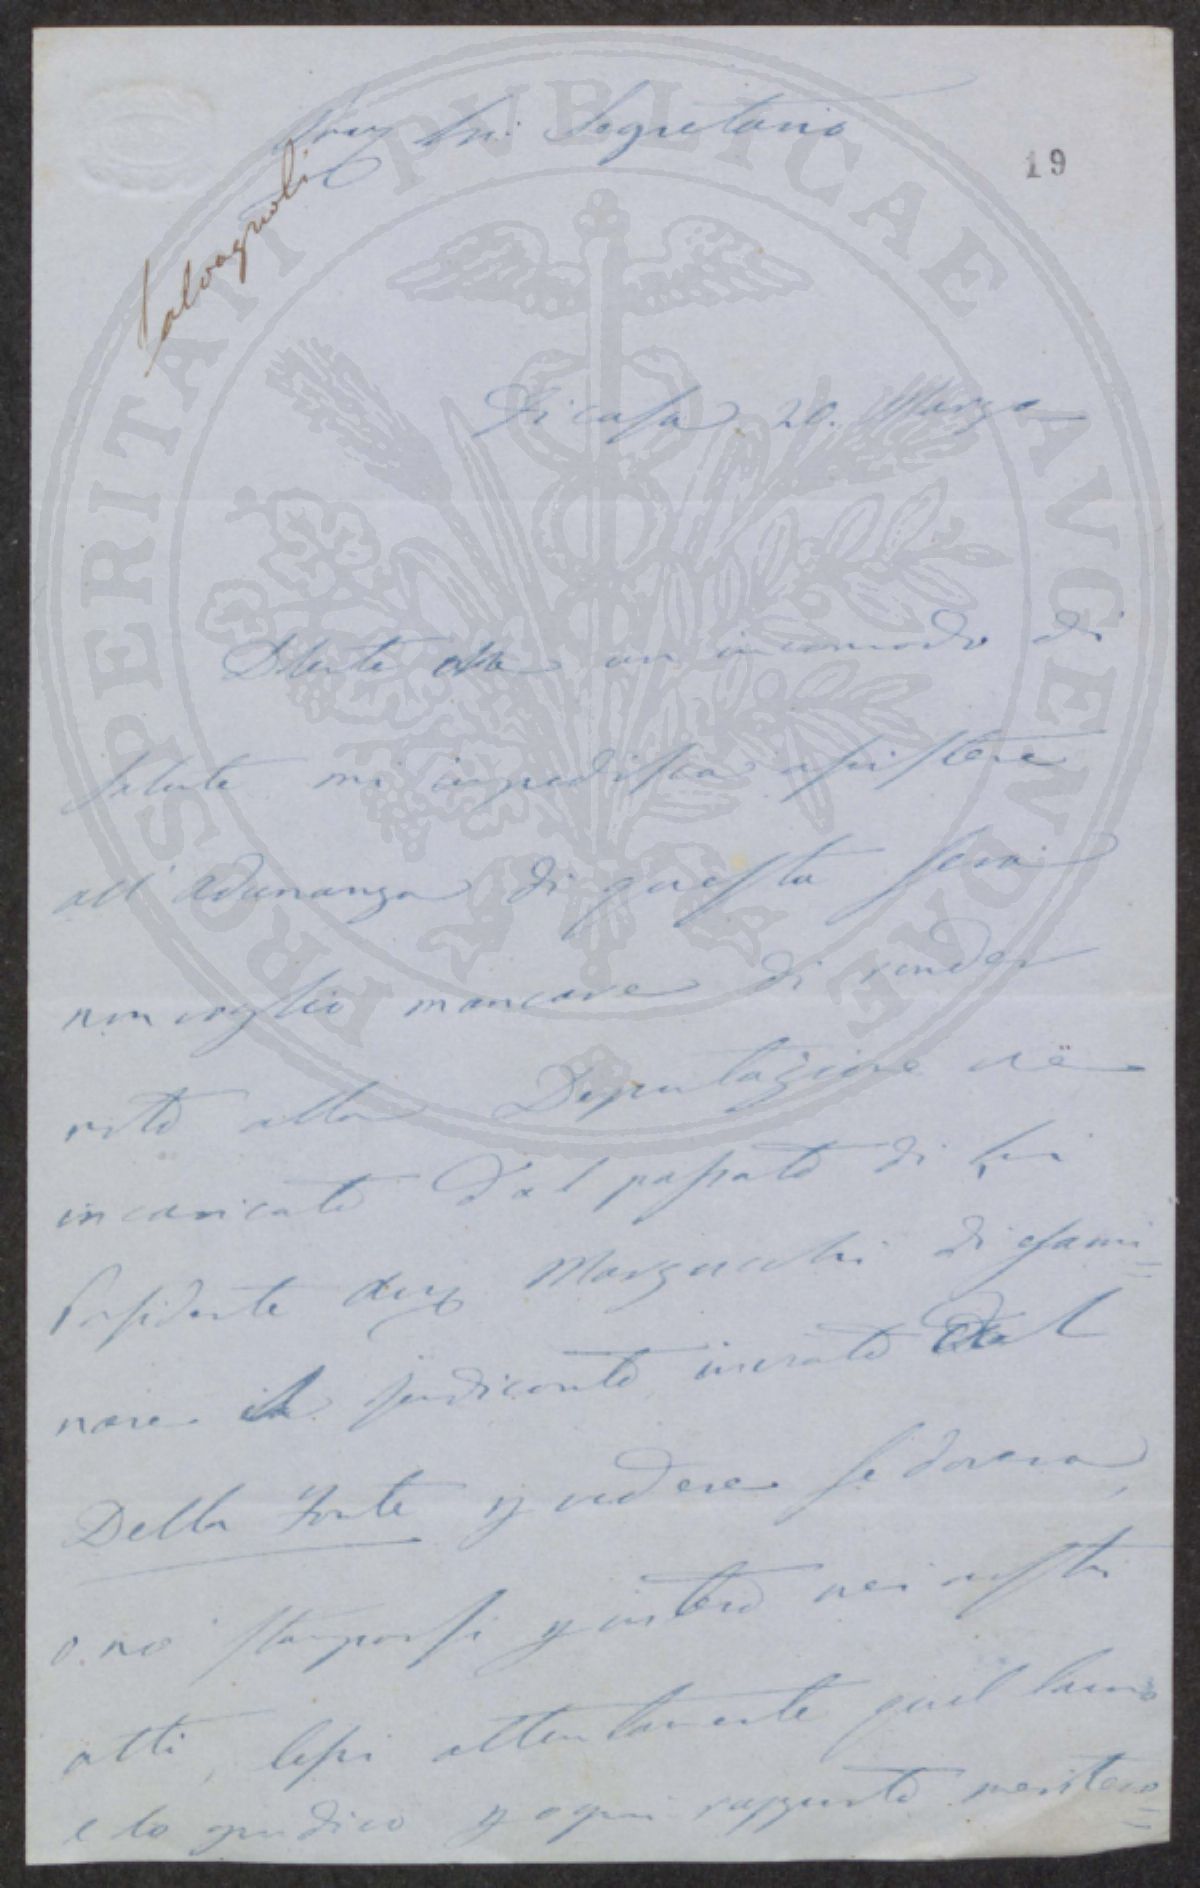 Sig. Segretario
19
Salvagnoli
Di casa 20. Marzo
un incomodo di
salute mi impedisca assistere
all'adunanza di questa sera
non voglio mancare di render
noto alla Deputazione che
incaricato dal passato di Lei
Presidente Marzucchi di esami=
nare il rendiconto inviato dal
Della Fonte p vedere se doveva,
o nò stamparsi p intero nei nostri
atti, lessi attentamente quel lavoro
e lo giudico p ogni rapporto meritevo=
PROSPERITATI PVBLICAE AVGENDAE